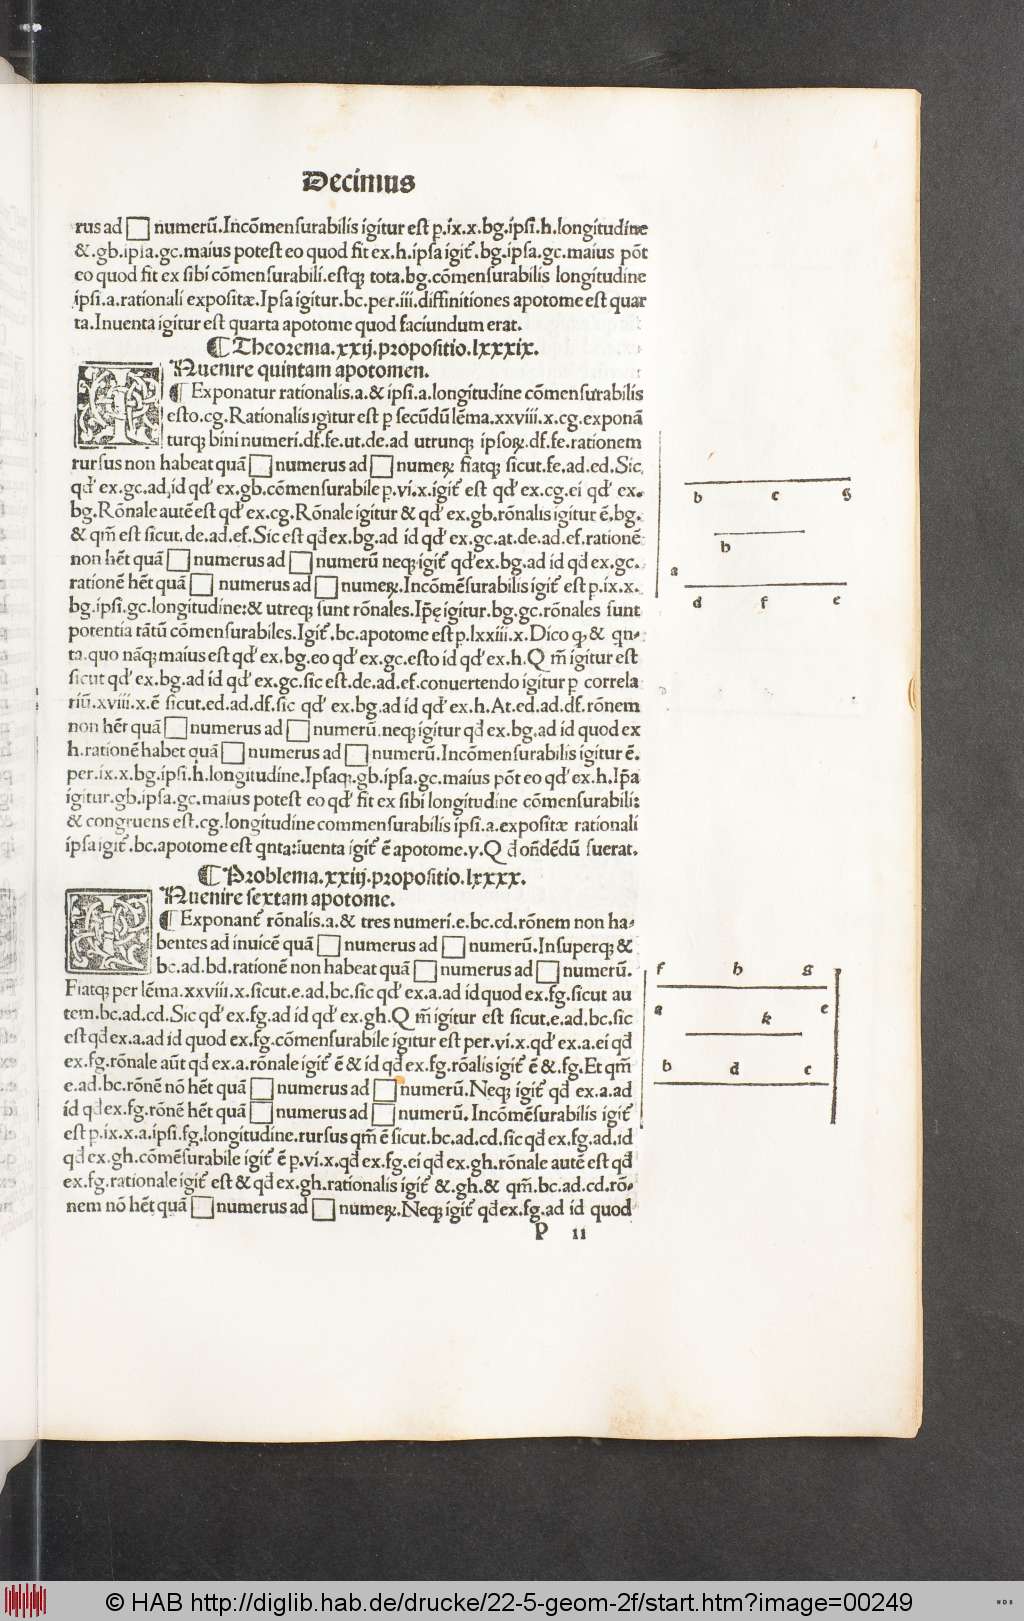 Decimus
rus ad □ numerũ.Incõmensurabilis igitur est p.ix.x.bg.ipsi.h.longitudine
&.gb.ipsa.gc.maius potest eo quod fit ex.h.ipsa igit̃.bg.ipsa.gc.maius põt
eo quod fit ex sibi cõmensurabili.estqꝫ tota.bg.cõmensurabilis longitudine
ipsi.a.rationali expositæ.Ipsa igitur.bc.per.iii.diffinitiones apotome est quar
ta.Inuenta igitur est quarta apotome quod faciundum erat.
¶Theorema.xxij.propositio.lxxxix.
INuenire quintam apotomen.
¶Exponatur rationalis.a.& ipsi.a.longitudine cõmensurabilis
esto.cg.Rationalis igitur est p secũdũ lẽma.xxviii.x.cg.exponã
turqꝫ bini numeri.df.fe.ut.de.ad utrunqꝫ ipsoꝝ.df.fe.rationem
rursus non habeat quã □ numerus ad □ numeꝝ fiatqꝫ sicut.fe.ad.ed.Sic
qđ ex.gc.ad.id qđ ex.gb.cõmensurabile p.vi.x.igit̃ est qđ ex.cg.ei qđ ex.
bg.Rõnale autẽ est qđ ex.cg.Rõnale igitur & qđ ex.gb.rõnalis igitur ẽ.bg.
& qm̃ est sicut.de.ad.ef.Sic est qđ ex.bg.ad id qđ ex.gc.at.de.ad.ef.rationẽ
non hẽt quã □ numerus ad □ numerũ neqꝫ igit̃ qđ ex.bg.ad id qđ ex.gc.
rationẽ hẽt quã □ numerus ad □ numeꝝ.Incõmẽsurabilis igit̃ est p.ix.x.
bg.ipsi.gc.longitudine:& utreqꝫ sunt rõnales.Ip̃ę igitur.bg.gc.rõnales sunt
potentia tãtũ cõmensurabiles.Igit̃.bc.apotome est p.lxxiii.x.Dico qꝫ & qn-
ta.quo nãqꝫ maius est qđ ex.bg.eo qđ ex.gc.esto id qđ ex.h.Q m̃ igitur est
sicut qđ ex.bg.ad id qđ ex.gc.sic est.de.ad.ef.conuertendo igitur p correla
riũ.xviii.x.ẽ sicut.ed.ad.df.sic qđ ex.bg.ad id qđ ex.h.At.ed.ad.df.rõnem
non hẽt quã □ numerus ad □ numerũ.neqꝫ igitur qđ ex.bg.ad id quod ex
h.rationẽ habet quã □ numerus ad □ numerũ.Incõmensurabilis igitur ẽ.
per.ix.x.bg.ipsi.h.longitudine.Ipsaqꝫ.gb.ipsa.gc.maius põt eo qđ ex.h.Ip̃a
igitur.gb.ipsa.gc.maius potest eo qđ fit ex sibi longitudine cõmensurabili:
& congruens est.cg.longitudine commensurabilis ipsi.a.expositæ rationali
ipsa igit̃.bc.apotome est qnta:iuenta igit̃ ẽ apotome.v.Q đ oñdẽdũ fuerat.
¶Problema.xxiij.propositio.lxxxx.
INuenire sextam apotome.
¶Exponant̃ rõnalis.a.& tres numeri.e.bc.cd.rõnem non ha-
bentes ad inuicẽ quã □ numerus ad □ numerũ.Insuperqꝫ &
bc.ad.bd.rationẽ non habeat quã □ numerus ad □ numerũ.
Fiatqꝫ per lẽma.xxviii.x.sicut.e.ad.bc.sic qđ ex.a.ad id quod ex.fg.sicut au
tem.bc.ad.cd.Sic qđ ex.fg.ad id qđ ex.gh.Q m̃ igitur est sicut.e.ad.bc.sic
est qđ ex.a.ad id quod ex.fg.cõmensurabile igitur est per.vi.x.qđ ex.a.ei qđ
ex.fg.rõnale aũt qđ ex.a.rõnale igit̃ ẽ & id qđ ex.fg.rõalis igit̃ ẽ &.fg.Et qm̃
e.ad.bc.rõnẽ nõ hẽt quã □ numerus ad □ numerũ.Neqꝫ igit̃ qđ ex.a.ad
id qđ ex.fg.rõnẽ hẽt quã □ numerus ad □ numerũ.Incõmẽsurabilis igit̃
est p.ix.x.a.ipsi.fg.longitudine.rursus qm̃ ẽ sicut.bc.ad.cd.sic qđ ex.fg.ad.id
qđ ex.gh.cõmẽsurabile igit̃ ẽ p.vi.x.qđ ex.fg.ei qđ ex.gh.rõnale autẽ est qđ
ex.fg.rationale igit̃ est & qđ ex.gh.rationalis igit̃ &.gh.& qm̃.bc.ad.cd.rõ-
nem nõ hẽt quã □ numerus ad □ numeꝝ.Neqꝫ igit̃ qđ ex.fg.ad id quod
P ii
b c g
h
a
d f e
f h g
a k e
b d c
© HAB http://diglib.hab.de/drucke/22-5-geom-2f/start.htm?image=00249